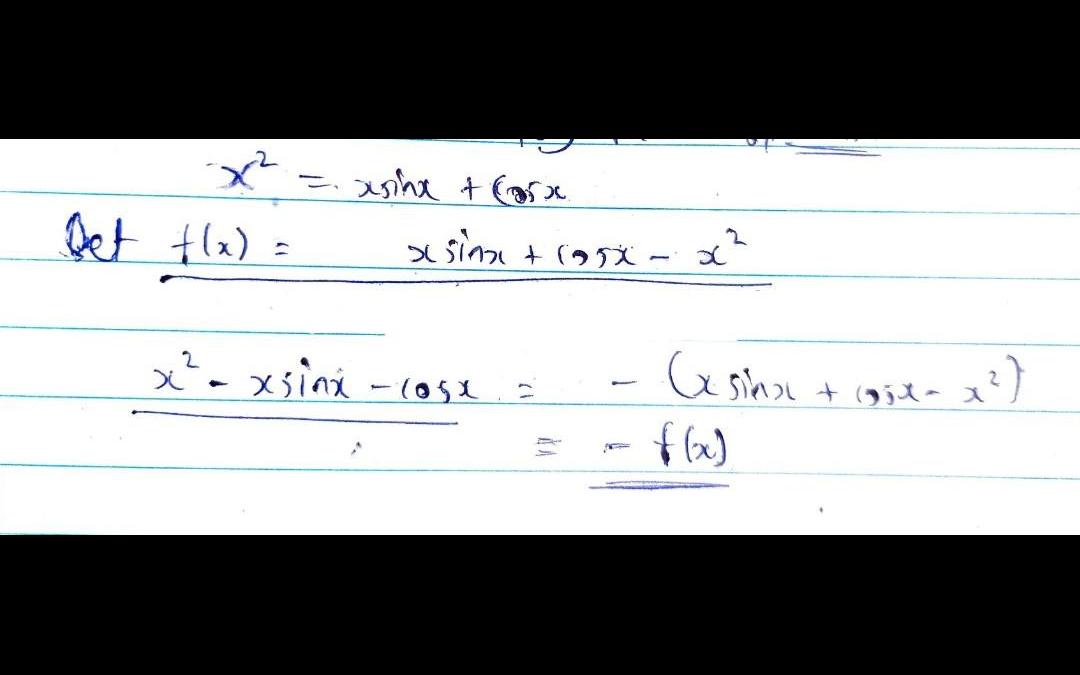 x² = xsinx + cosx
Let f(x) = x sinx + cosx - x²
x² - xsinx - cosx = - (x sinx + cosx - x²)
= - f(x)